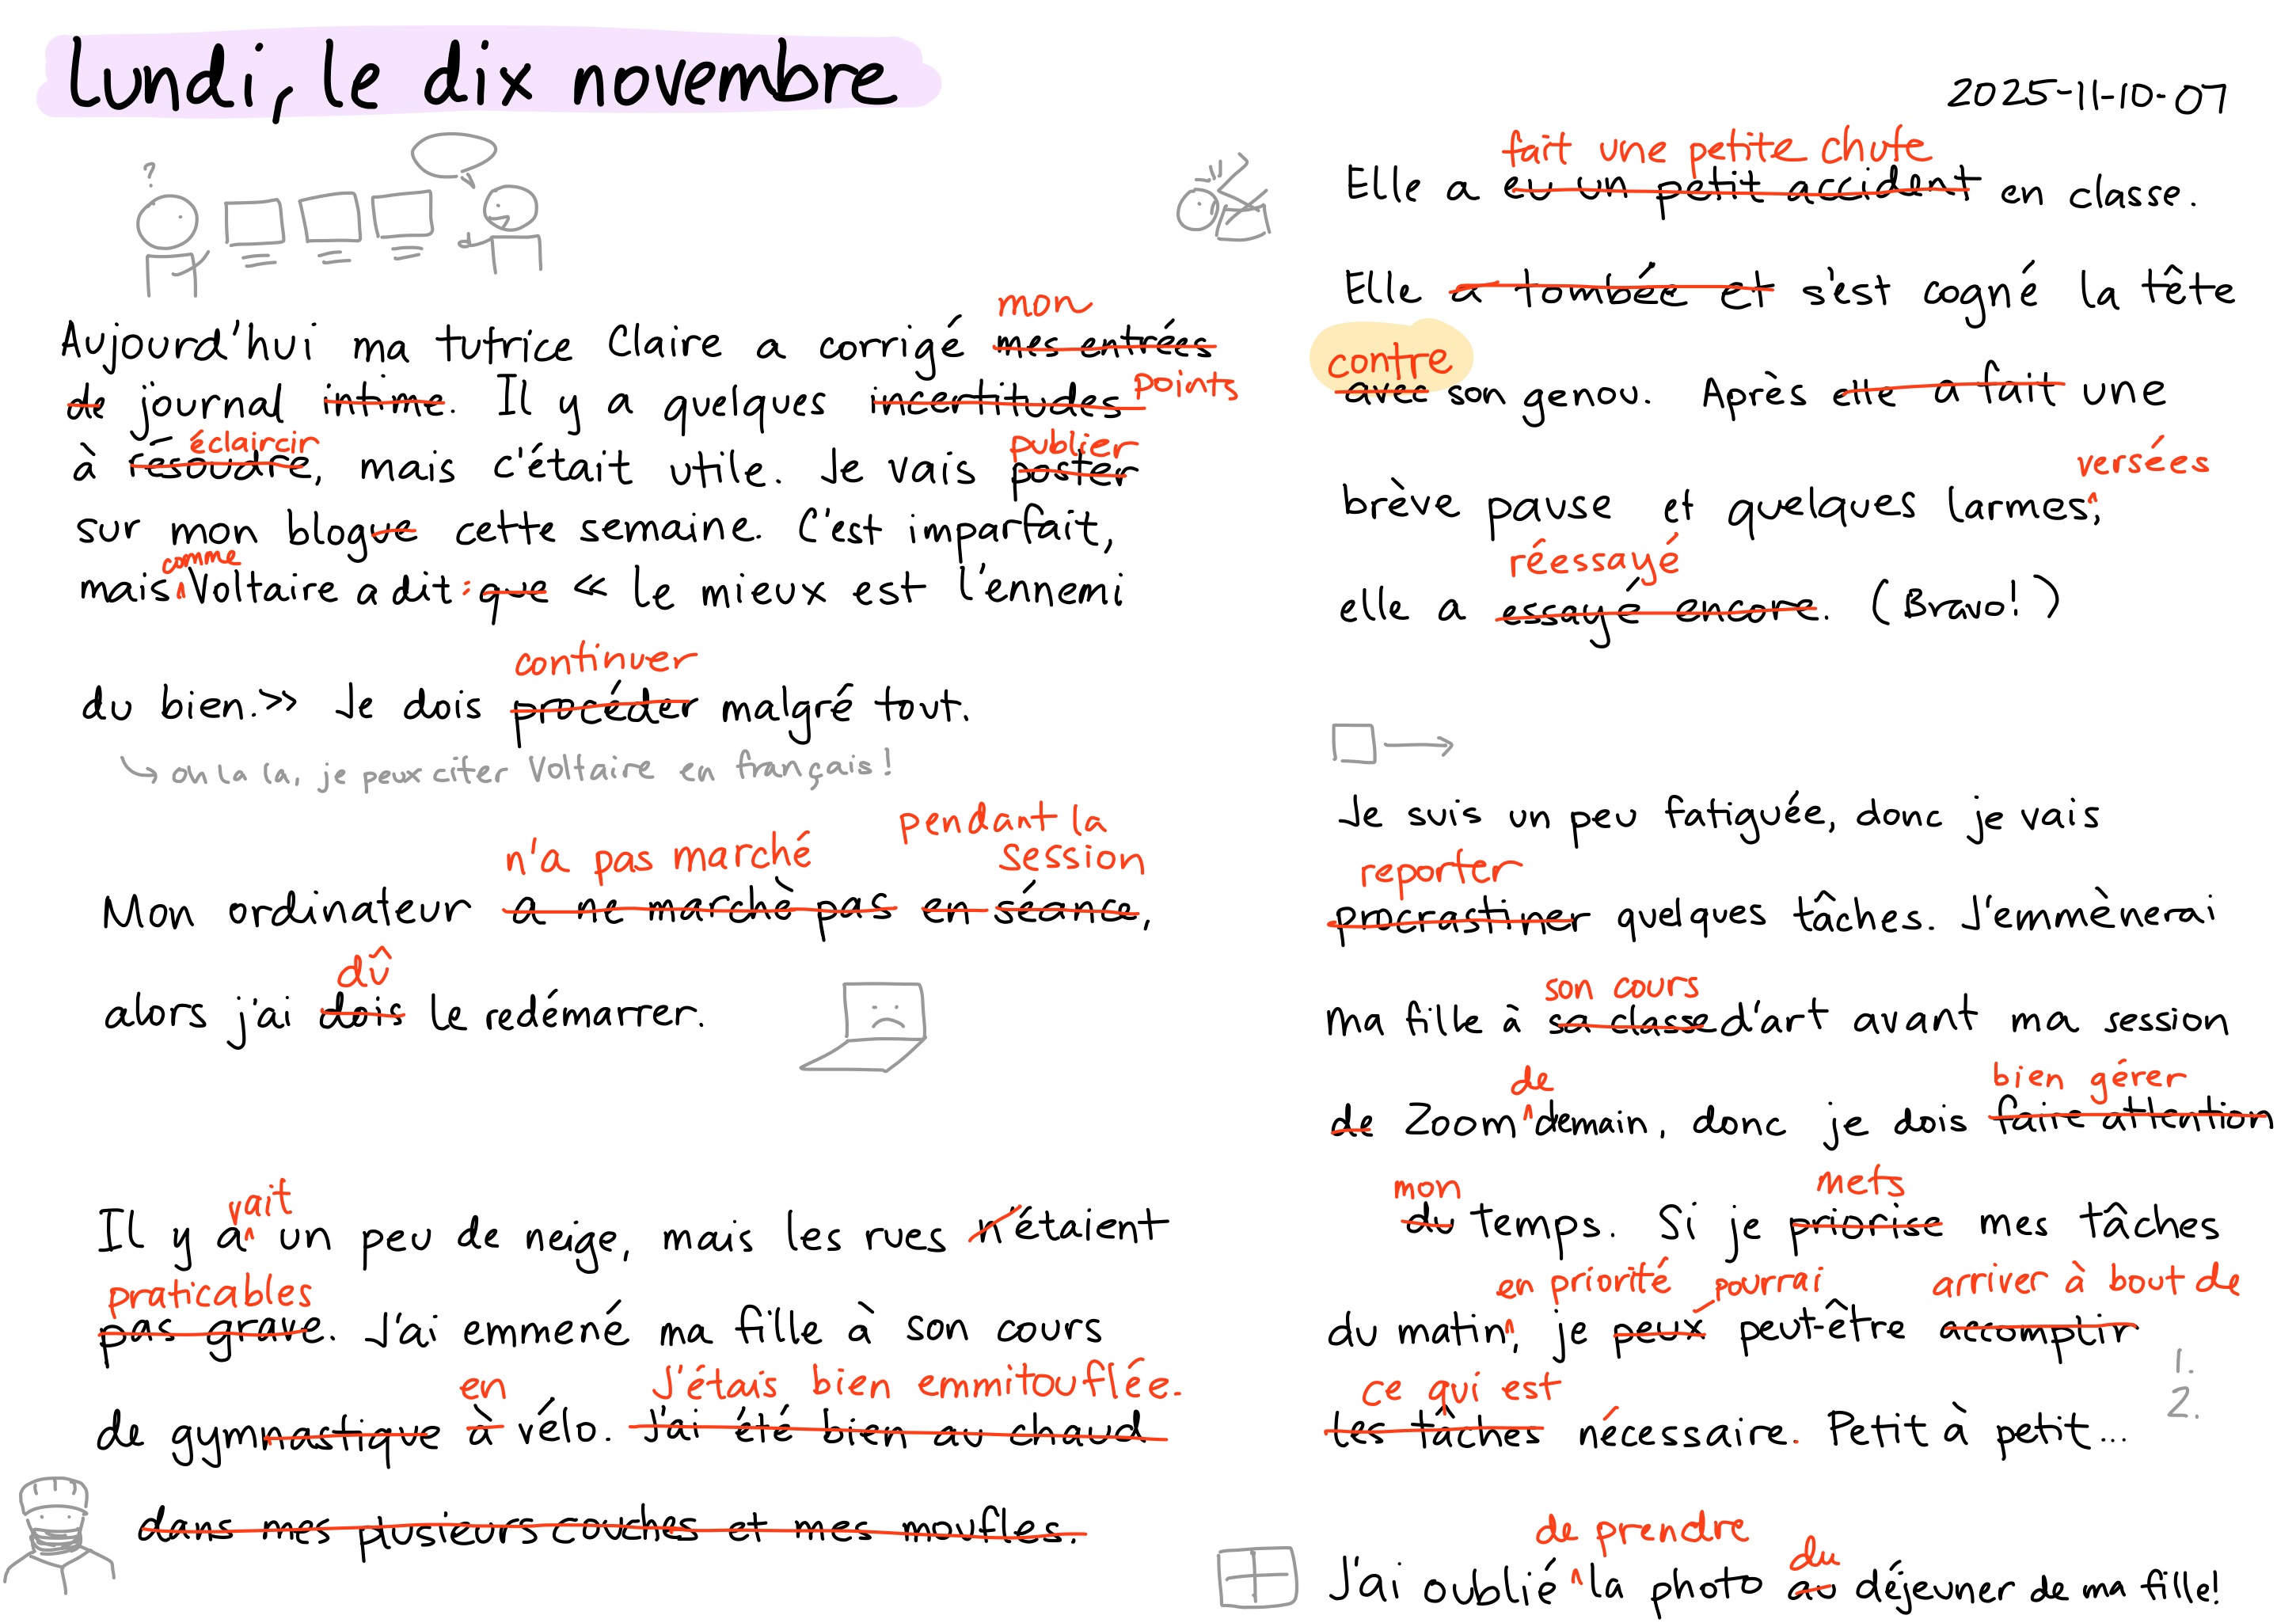 lundi, le dix novembre
2025-11-10-07
?
mon
Aujourd'hui ma tutrice Claire a corrigé mes entrées
de journal intime. Il y a quelques incertitudes points
éclaircir publier
à résoudre, mais c'était utile. Je vais poster
sur mon blogue cette semaine. C'est imparfait,
comme
mais Voltaire a dit : que « Le mieux est l'ennemi
continuer
du bien.» Je dois procéder malgré tout.
oh la la, je peux citer Voltaire en français!
n'a pas marché pendant la session
Mon ordinateur a ne marchè pas en séance,
dû
alors j'ai dois le redémarrer.
vait
Il y a un peu de neige, mais les rues n'étaient
praticables
pas grave. J'ai emmené ma fille à son cours
en J'étais bien emmitouflée.
de gymnastique à vélo. J'ai été bien au chaud
dans mes plusieurs couches et mes moufles.
fait une petite chute
Elle a eu un petit accident en classe.
Elle a tombée et s'est cogné la tête
contre
avec son genou. Après elle a fait une
versées
brève pause et quelques larmes,
réessayé
elle a essayé encore. (Bravo!)
Je suis un peu fatiguée, donc je vais
reporter
procrastiner quelques tâches. J'emmènerai
son cours
ma fille à sa classe d'art avant ma session
de bien gérer
de Zoom demain, donc je dois faire attention
mon mets
du temps. Si je priorise mes tâches
en priorité pourrai arriver à bout de
du matin, je peux peut-être accomplir
1.
2.
ce qui est
les tâches nécessaire. Petit à petit...
de prendre du
J'ai oublié la photo au déjeuner de ma fille!